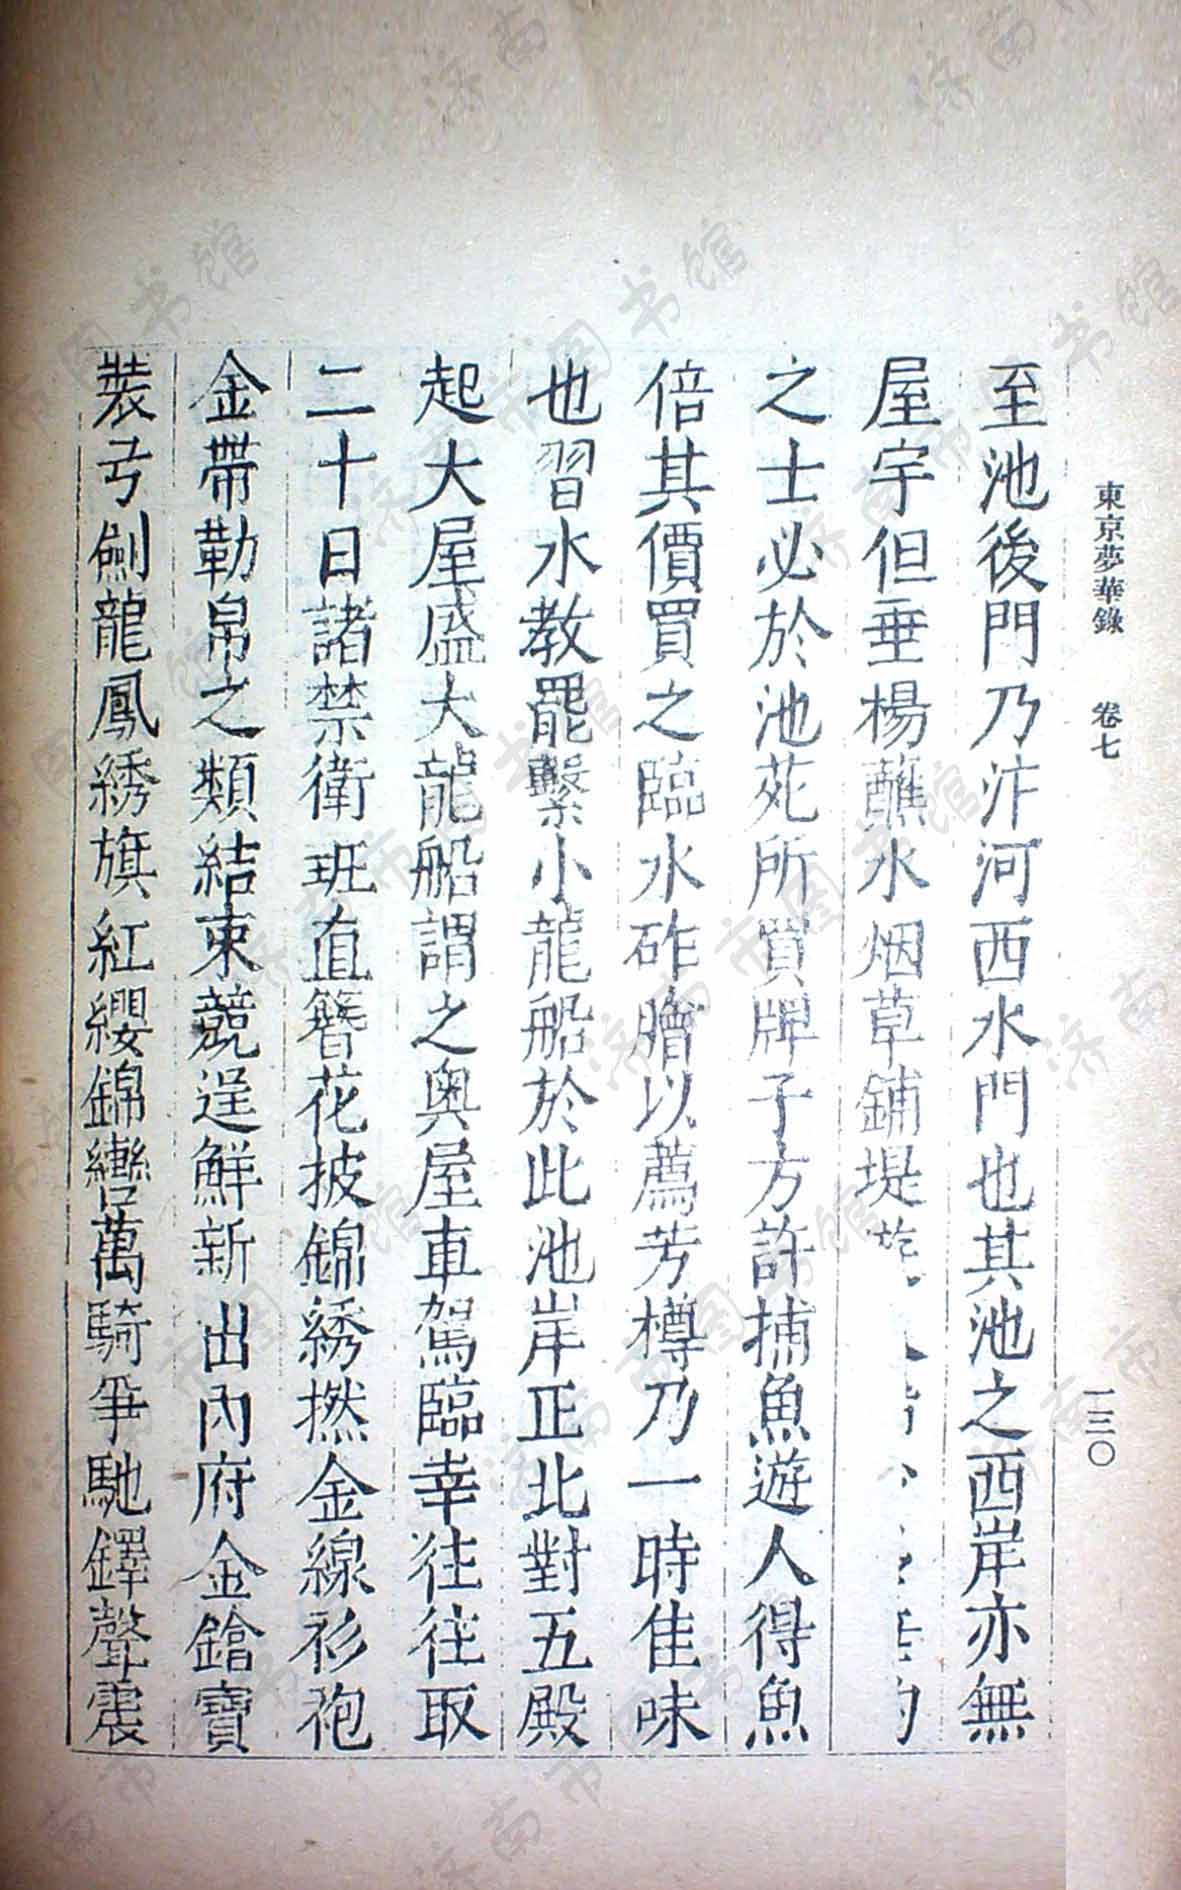 東京夢華錄 卷七 一三〇
至池後門乃汴河西水門也其池之西岸亦無
屋宇但垂楊蘸水烟草鋪堤
之士必於池苑所買牌子方許捕魚遊人得魚
倍其價買之臨水砟膾以薦芳樽乃一時佳味
也習水教罷繫小龍船於此池岸正北對五殿
起大屋盛大龍船謂之奥屋車駕臨幸往往取
二十日諸禁衛班直簪花披錦綉撚金線衫袍
金帶勒帛之類結束競逞鮮新出內府金鎗寶
裝弓劍龍鳳綉旗紅纓錦轡萬騎爭馳鐸聲震
濟南市图书馆